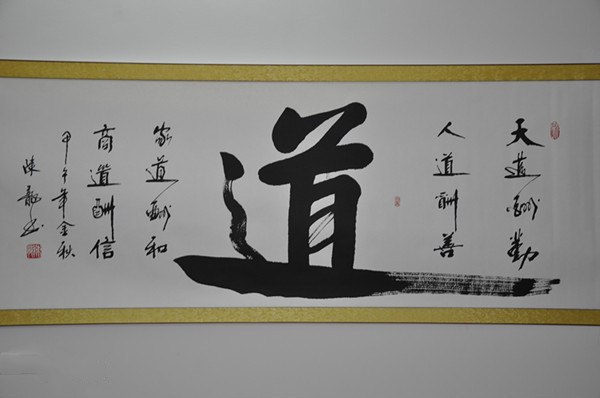 天道酬勤
人道酬善
道
家道酬和
商道酬信
甲午年金秋
陳龍书